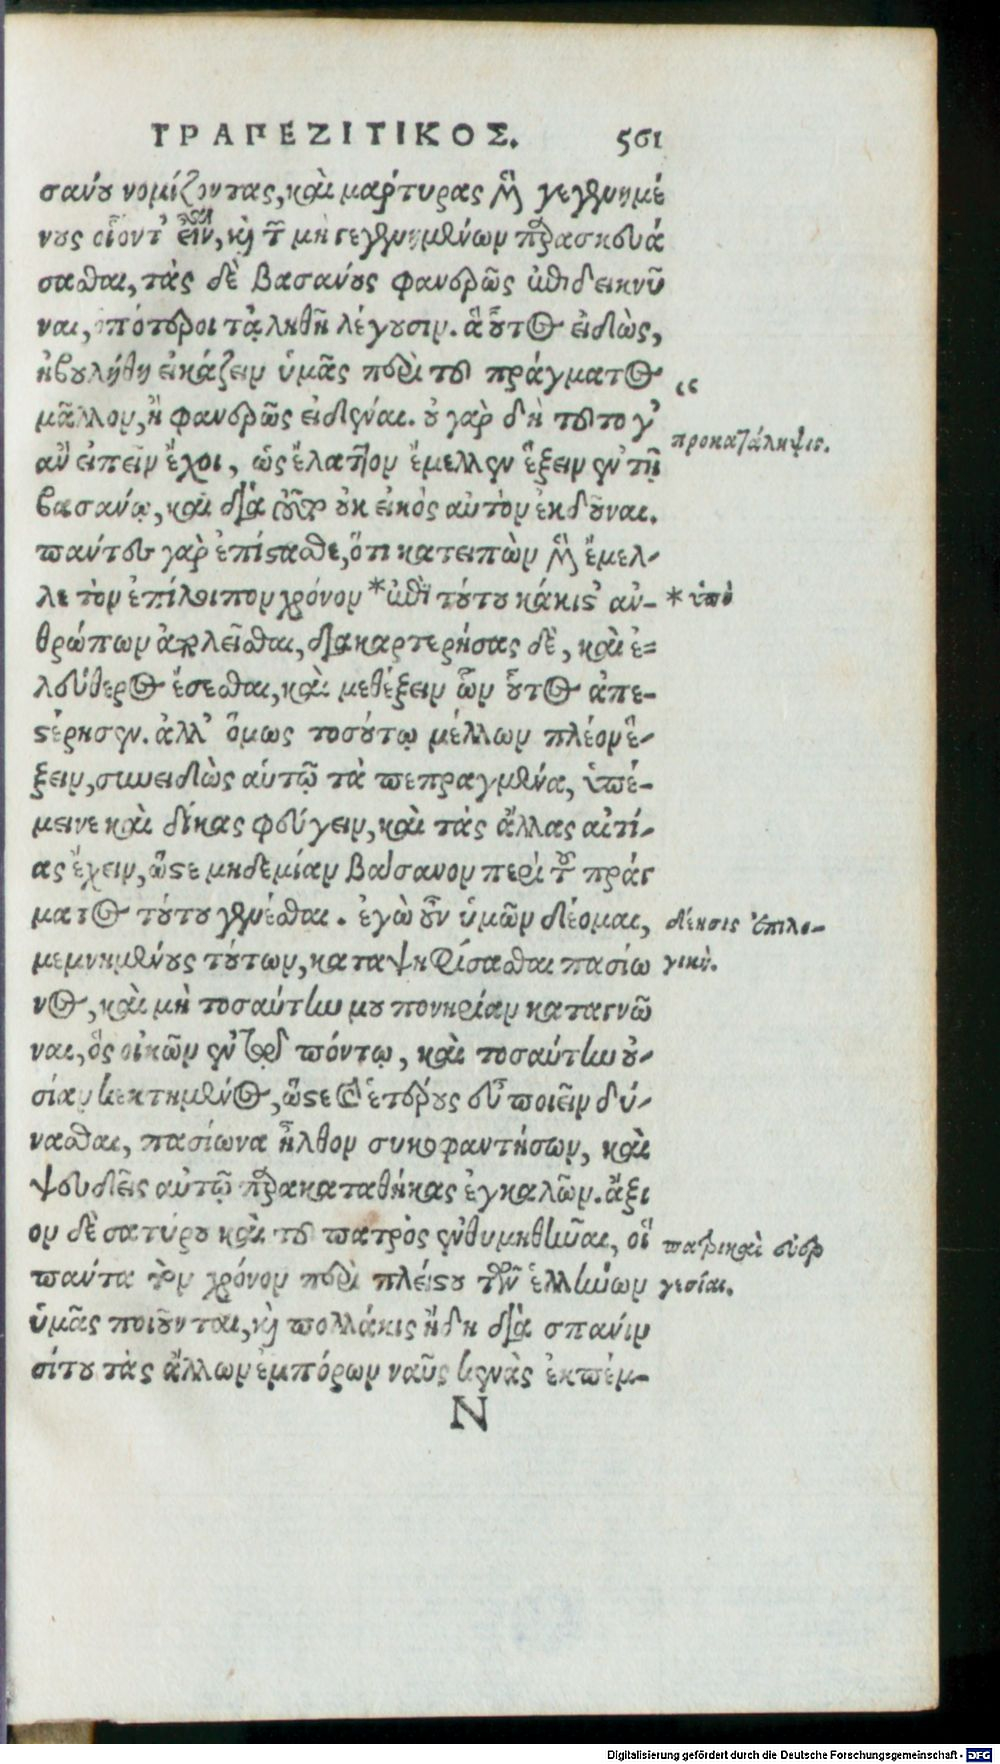 ΤΡΑΠΕΖΙΤΙΚΟΣ. 561
σάνου νομίζοντας, καὶ μάρτυρας μὲν γεγενημέ
νους οἷόντ' εἶναι, καὶ τῶν μὴ γεγενημένων παρασκευά
σασθαι, τὰς δὲ βασάνους φανερῶς ἐπιδεικνύ
ναι, ὁπότεροι τἀληθῆ λέγουσιν. ἃ οὗτος εἰδὼς,
ἠβουλήθη εἰκάζειν ὑμᾶς περὶ τοῦ πράγματος
μᾶλλον, ἢ φανερῶς εἰδέναι. οὐ γὰρ δὴ τοῦτο γ' “
προκατάληψις.
ἂν εἰπεῖν ἔχοι, ὡς ἔλαττον ἔμελλεν ἕξειν ἐν τῇ
βασάνῳ, καὶ διὰ τοῦτο οὐκ εἰκὸς αὐτὸν ἐκδοῦναι.
πάντες γὰρ ἐπίστασθε, ὅτι κατειπὼν μὲν ἔμελ-
λε τὸν ἐπίλοιπον χρόνον *ἐπὶ τούτου κάκιστ' ἀν- * ὑπὸ
θρώπων ἀπολεῖσθαι, διακαρτερήσας δὲ, καὶ ἐ-
λεύθερος ἔσεσθαι, καὶ μεθέξειν ὧν οὗτος ἀπε-
στέρησεν. ἀλλ' ὅμως τοσούτῳ μέλλων πλέον ἕ-
ξειν, συνειδὼς αὑτῷ τὰ πεπραγμένα, ὑπέ-
μεινε καὶ δίκας φεύγειν, καὶ τὰς ἄλλας αἰτί-
ας ἔχειν, ὥστε μηδεμίαν βάσανον περὶ τοῦ πράγ
ματος τούτου γενέσθαι. ἐγὼ οὖν ὑμῶν δέομαι, δέησις ἐπιλο-
μεμνημένους τούτων, καταψηφίσασθαι πασίω γική.
νος, καὶ μὴ τοσαύτην μου πονηρίαν καταγνῶ
ναι, ὃς οἰκῶν ἐν τῷ πόντῳ, καὶ τοσαύτην οὐ-
σίαν κεκτημένος, ὥστε καὶ ἑτέρους εὖ ποιεῖν δύ-
νασθαι, πασίωνα ἦλθον συκοφαντήσων, καὶ
ψευδεῖς αὐτῷ παρακαταθήκας ἐγκαλῶν. ἄξι
ον δὲ σατύρου καὶ τοῦ πατρὸς ἐνθυμηθῆναι, οἳ πατρικαὶ εὐερ
πάντα τὸν χρόνον περὶ πλείστου τῶν ἑλλήνων γεσίαι.
ὑμᾶς ποιοῦνται, καὶ πολλάκις ἤδη διὰ σπάνιν
σίτου τὰς ἄλλων ἐμπόρων ναῦς κενὰς ἐκπέμ-
N
Digitalisierung gefördert durch die Deutsche Forschungsgemeinschaft - DFG